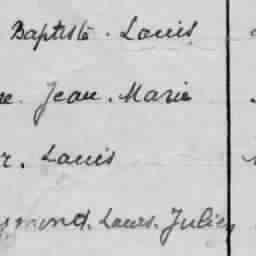 Baptiste. Louis
Jean. Marie
Louis
ymond. Louis. Julien